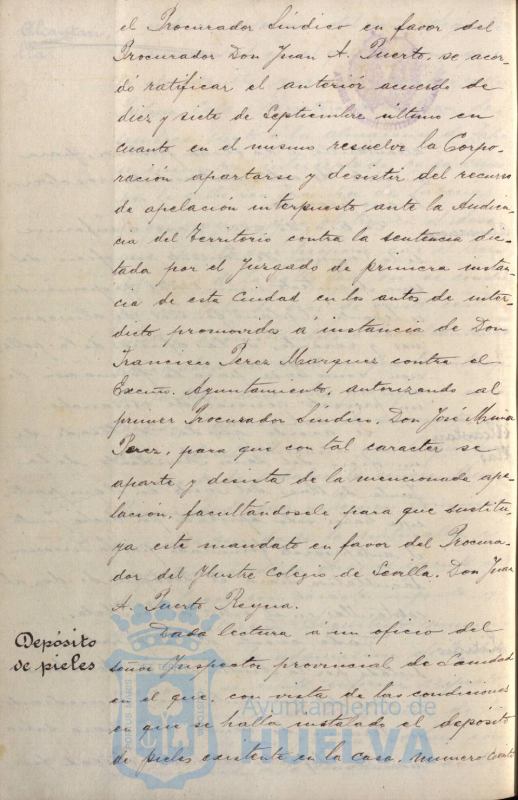 el Procurador Síndico en favor del
Procurador Don Juan A. Puerto, se acor-
dó ratificar el anterior acuerdo de
diez y siete de Septiembre último en
cuanto en el mismo resuelve la Corpo-
ración apartarse y desistir del recurso
de apelación interpuesto ante la Audien-
cia del Territorio contra la sentencia dic-
tada por el Juzgado de primera instan-
cia de esta Ciudad en los autos de inter-
dicto promovida á instancia de Don
Francisco Perez Marquez contra el
Excmo. Ayuntamiento, autorizando al
primer Procurador Síndico, Don José Maria
Perez, para que con tal caracter se
aparte y desista de la mencionada ape-
lación, facultándosele para que sustitu-
ya este mandato en favor del Procura-
dor del Ilustre Colegio de Sevilla, Don Juan
A. Puerto Reyna.
Depósito
de pieles
Dada lectura á un oficio del
señor Inspector provincial de Sanidad
en el que, con vista de las condiciones
en que se halla instalado el depósito
de pieles existente en la casa, número
Ayuntamiento de
HUELVA